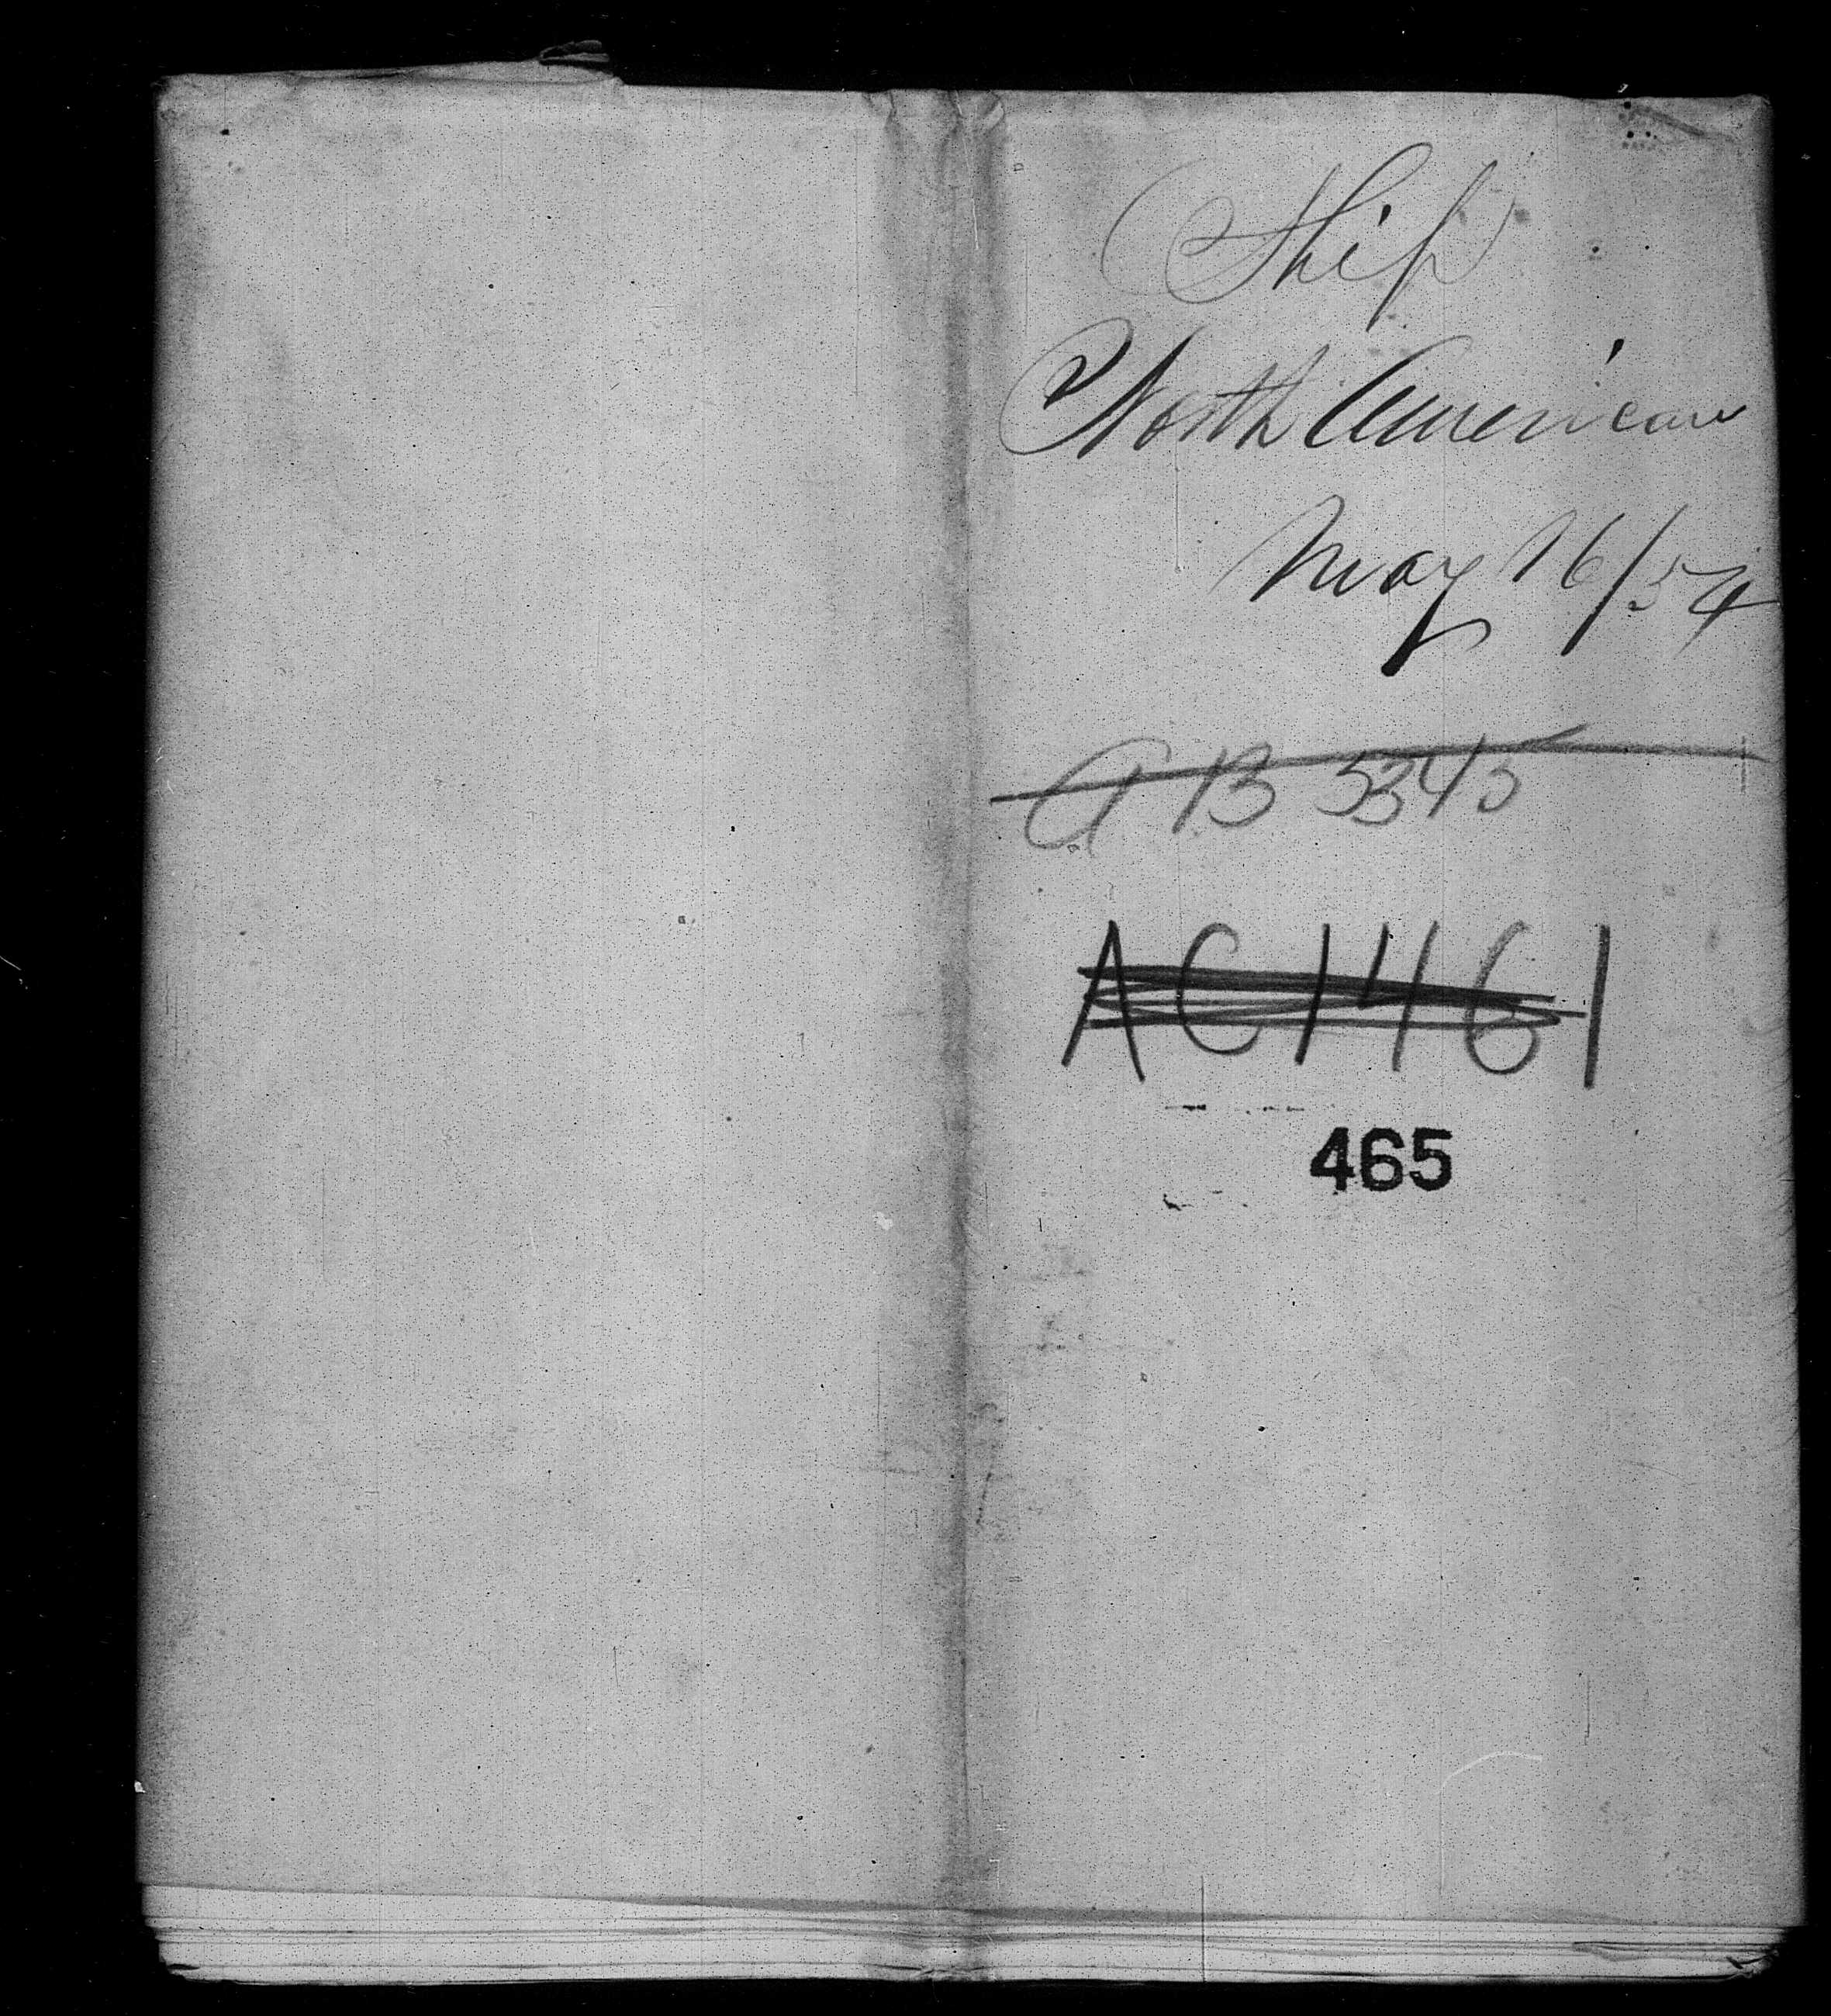 Ship
North American
May 16/54
AB 5345
AC1461
465